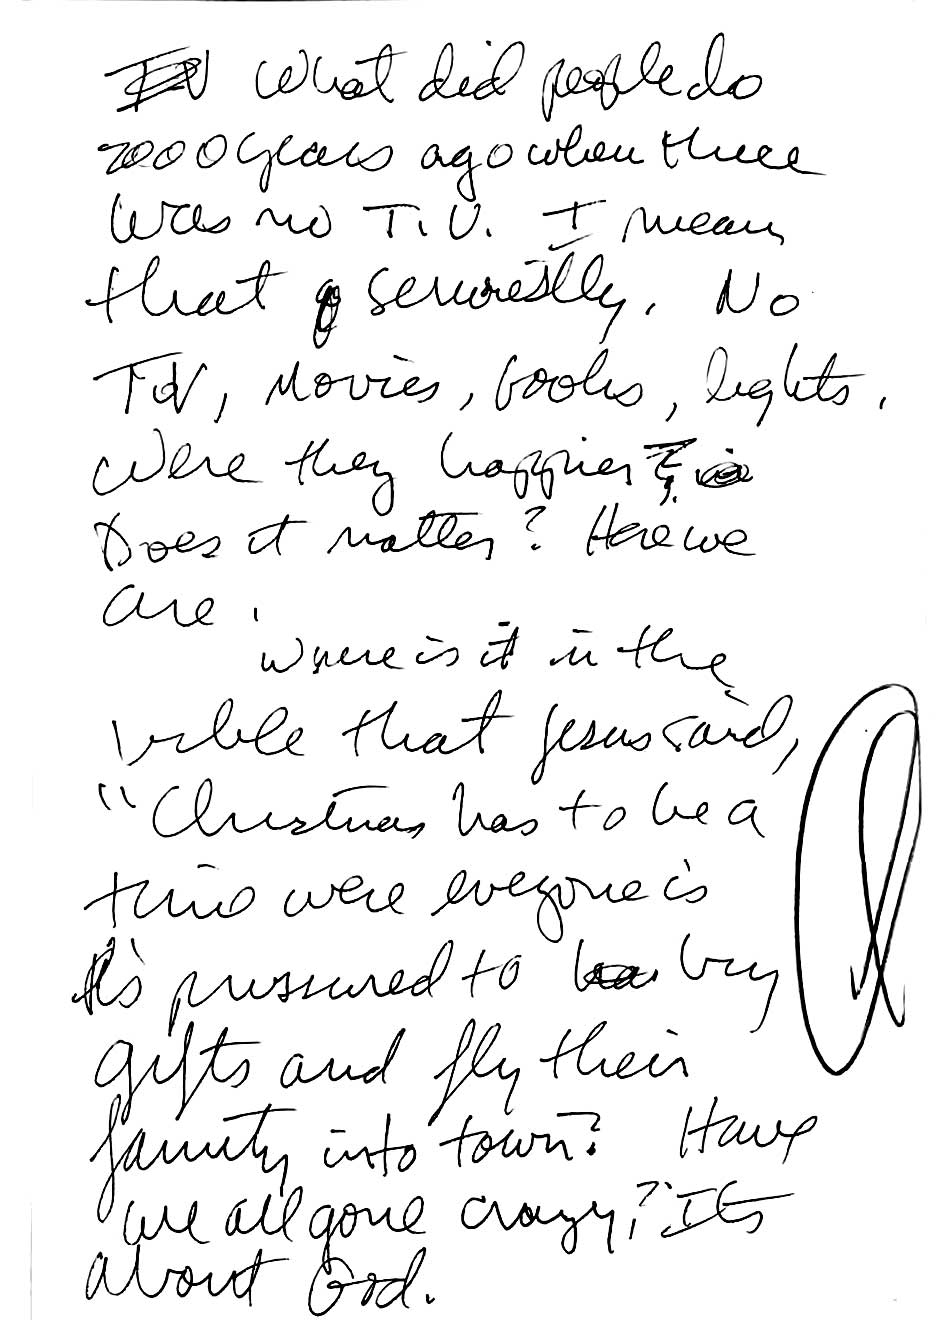 What did people do
2000 years ago when there
was no T.V. I mean
that seriously. No
TV, Movies, books, lights.
Were they happier?
Does it matter? Here we
are.
Where is it in the
bible that Jesus said,
"Christmas has to be a
time were everyone is
pressured to buy
gifts and fly their
family into town? Have
we all gone crazy? Its
about God.